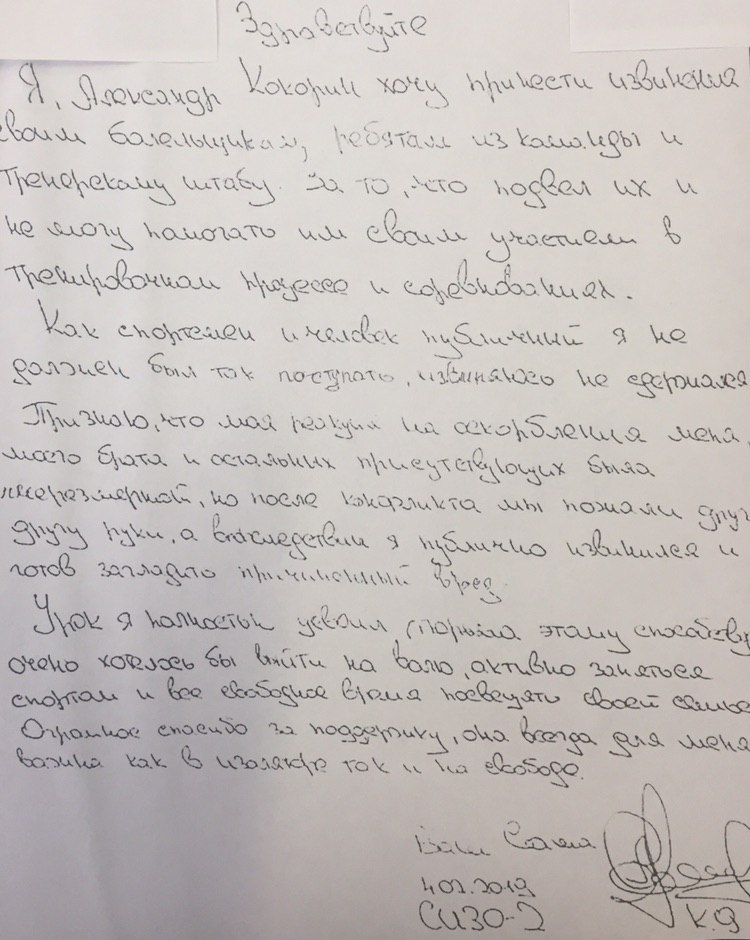 Здравствуйте
Я, Александр Кокорин хочу принести извинения
своим болельщикам, ребятам из команды и
тренерскому штабу. За то, что подвел их и
не могу помогать им своим участием в
тренировочном процессе и соревнованиях.
Как спортсмен и человек публичный я не
должен был так поступать, извиняюсь не сдержался
Признаю, что моя реакция на оскорбления меня,
моего брата и остальных присутствующих была
чрезмерной, но после конфликта мы пожали друг
другу руки, а впоследствии я публично извинился и
готов загладить причиненный вред.
Урок я полностью усвоил, тюрьма этому способству
очень хотелось бы выйти на волю, активно заняться
спортом и все свободное время посвещять своей семье
Огромное спасибо за поддержку, она всегда для меня
важна как в изоляторе так и на свободе.
Ваш Саша
4.02.2019
СИЗО-2 К.Я